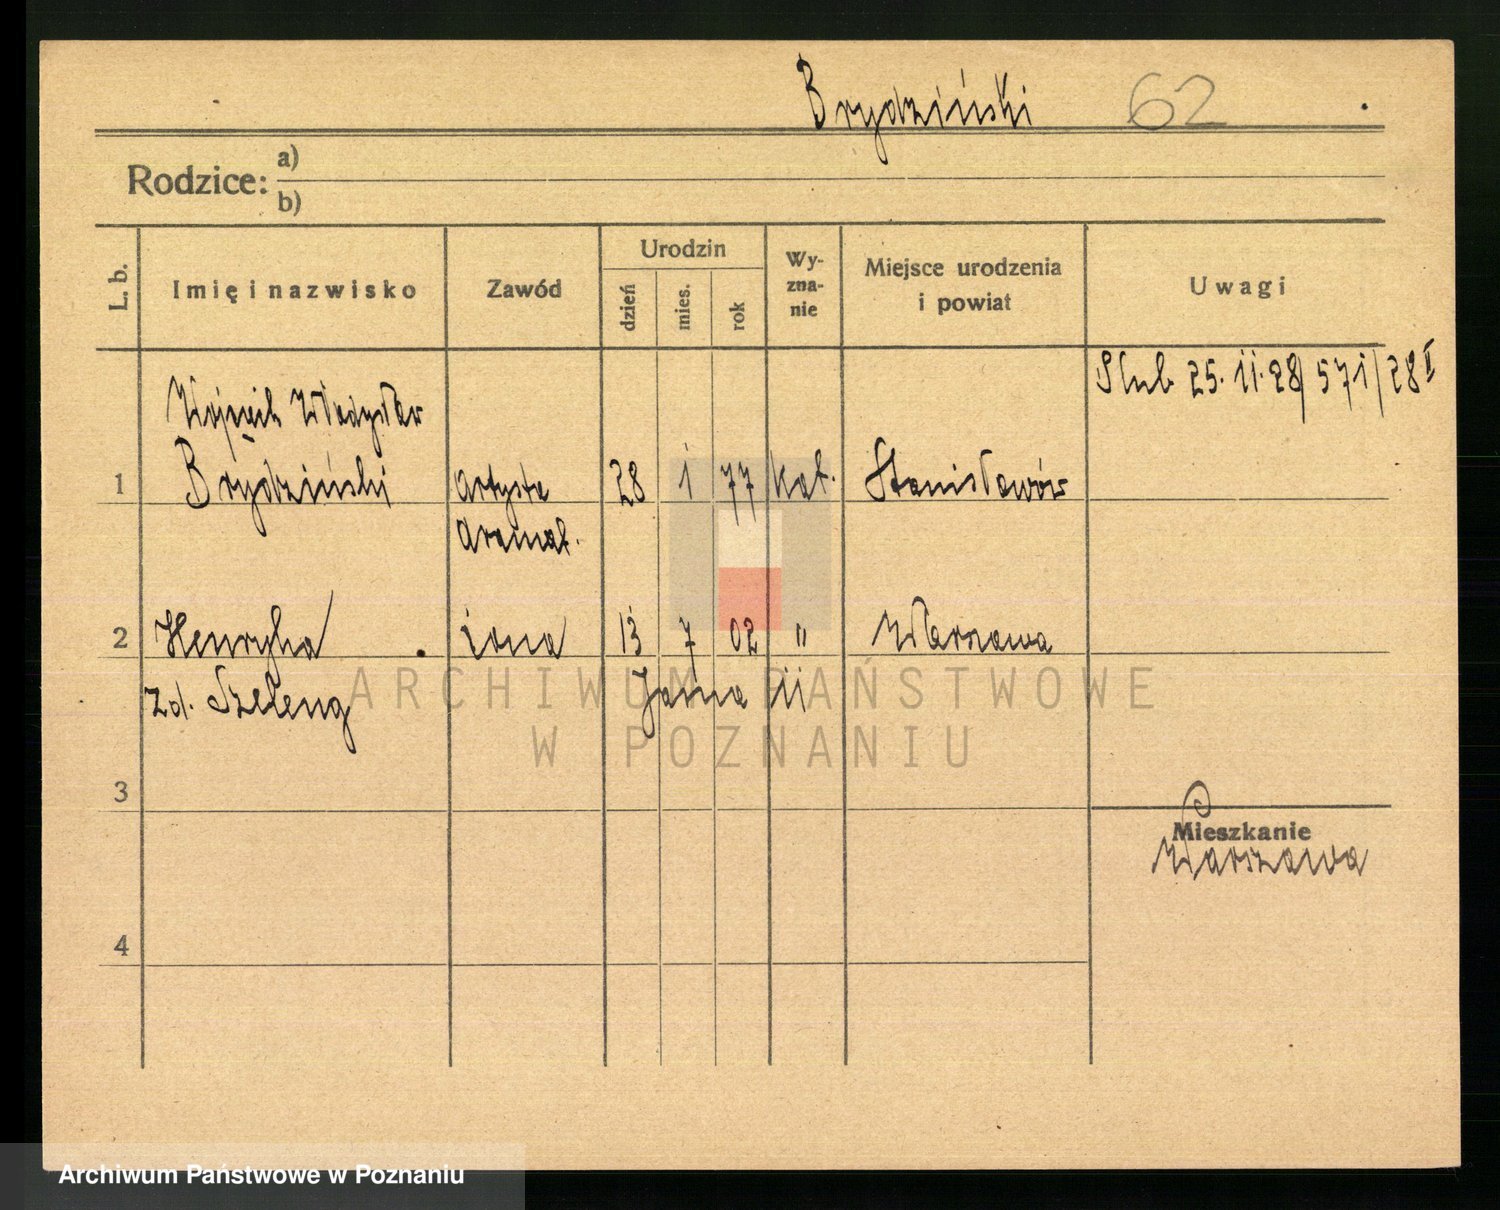 Brydziński 62
Rodzice: a)
b)
L. b. Imię i nazwisko Zawód Urodzin dzień mies. rok Wy-zna-nie Miejsce urodzenia i powiat Uwagi
Ślub 25.11.28/571/28 II
Wojciech Władysław
1 Brydziński artysta 28 1 77 kat. Stanisławów
dramat.
2 Henryka żona 13 7 02 " Warszawa
zd. Szeleng
ARCHIWUM PAŃSTWOWE
W POZNANIU
3
Mieszkanie
Warszawa
4
Archiwum Państwowe w Poznaniu